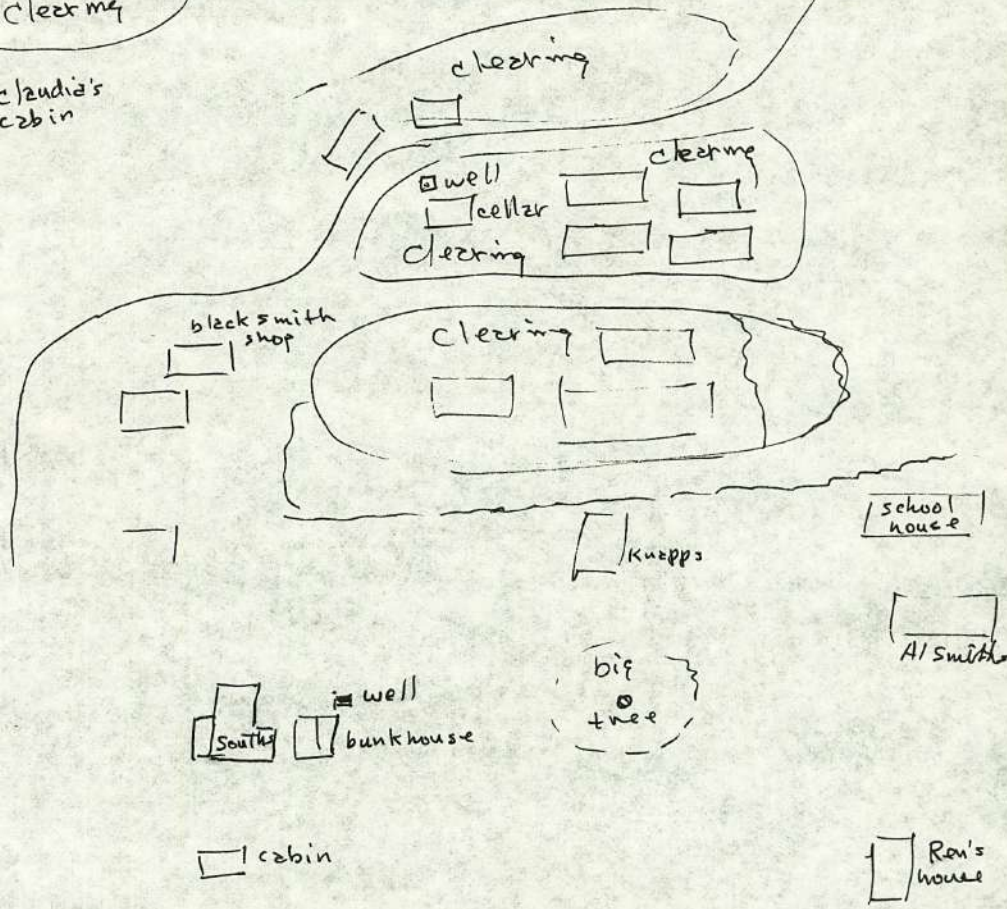 clearing
claudia's
cabin
clearing
clearing
well
cellar
clearing
blacksmith
shop
clearing
school
house
Knapps
Al Smiths
big
tree
well
Souths
bunkhouse
cabin
Ren's
house